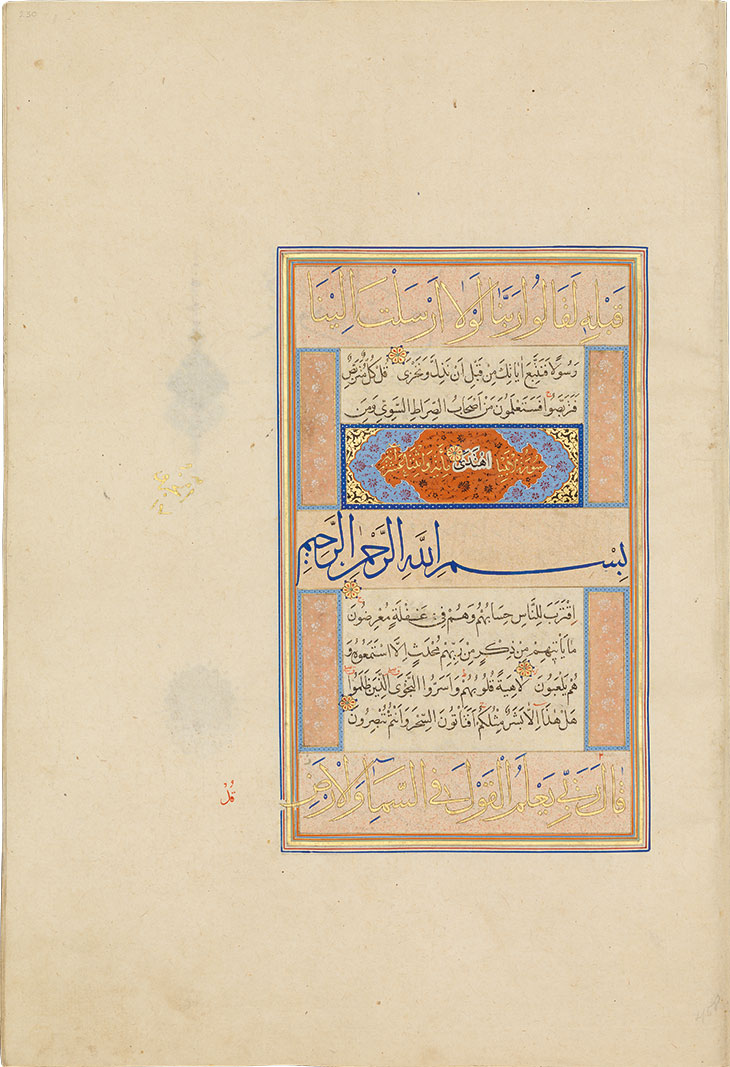 250
قَبْلِهِ لَقَالُوا رَبَّنَا لَوْلَا اَرْسَلْتَ اِلَيْنَا
رَسُولًا فَنَتَّبِعَ اٰيَاتِكَ مِنْ قَبْلِ اَنْ نَذِلَّ وَنَخْزٰى قُلْ كُلٌّ مُتَرَبِّصٌ
فَتَرَبَّصُوا فَسَتَعْلَمُونَ مَنْ اَصْحَابُ الصِّرَاطِ السَّوِيِّ وَمَنِ
سورة الانبيا اهْتَدٰى مائة واثنتا عشر
بِسْمِ اللهِ الرَّحْمٰنِ الرَّحِيمِ
اِقْتَرَبَ لِلنَّاسِ حِسَابُهُمْ وَهُمْ فِي غَفْلَةٍ مُعْرِضُونَ
مَا يَاْتِيهِمْ مِنْ ذِكْرٍ مِنْ رَبِّهِمْ مُحْدَثٍ اِلَّا اسْتَمَعُوهُ وَ
هُمْ يَلْعَبُونَ لَاهِيَةً قُلُوبُهُمْ وَاَسَرُّوا النَّجْوَى الَّذِينَ ظَلَمُوا
هَلْ هٰذَا اِلَّا بَشَرٌ مِثْلُكُمْ اَفَتَاْتُونَ السِّحْرَ وَاَنْتُمْ تُبْصِرُونَ
قَالَ رَبِّي يَعْلَمُ الْقَوْلَ فِي السَّمَاءِ وَالْاَرْضِ
قُلْ